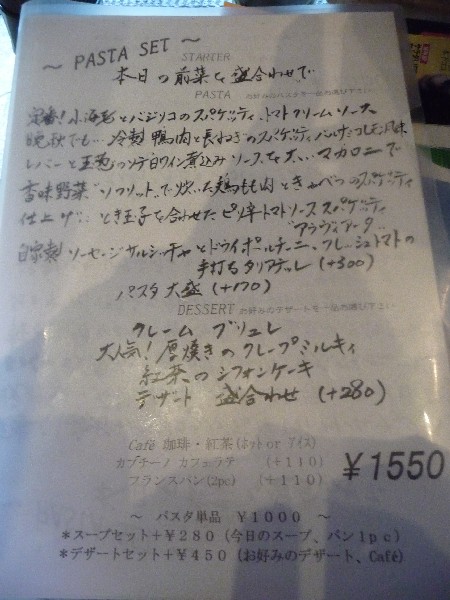 ～ PASTA SET ～
STARTER
本日の前菜を盛合わせで
PASTA お好みのパスタを一品お選び下さい
定番！小海老とバジリコのスパゲッティ、トマトクリームソース
晩秋でも…冷製 鴨肉と長ねぎのスパゲッティ レモン風味
レバーと玉葱のソテ 白ワイン煮込みソースを マカロニで
香味野菜"ソフリット"で炊いた鶏もも肉ときゃべつのスパゲッティ
仕上げにとき玉子を合わせたピリ辛トマトソース スパゲッティ
"アラヴィアータ"
自家製 ソーセージサルシッチャとドライポルチーニ、フレッシュトマトの
手打ち タリアテッレ (+300)
パスタ大盛 (+170)
DESSERT お好みのデザートを一品お選び下さい
クレーム ブリュレ
大人気！厚焼きのクレープミルキィ
紅茶のシフォンケーキ
デザート 盛合わせ (+280)
Café 珈琲・紅茶(ホット or アイス)
カプチーノ カフェラテ (+110)
フランスパン(2pc) (+110)
￥1550
～ パスタ単品 ￥1000 ～
＊スープセット＋￥280 (今日のスープ、パン1pc)
＊デザートセット＋￥450 (お好みのデザート、Café)